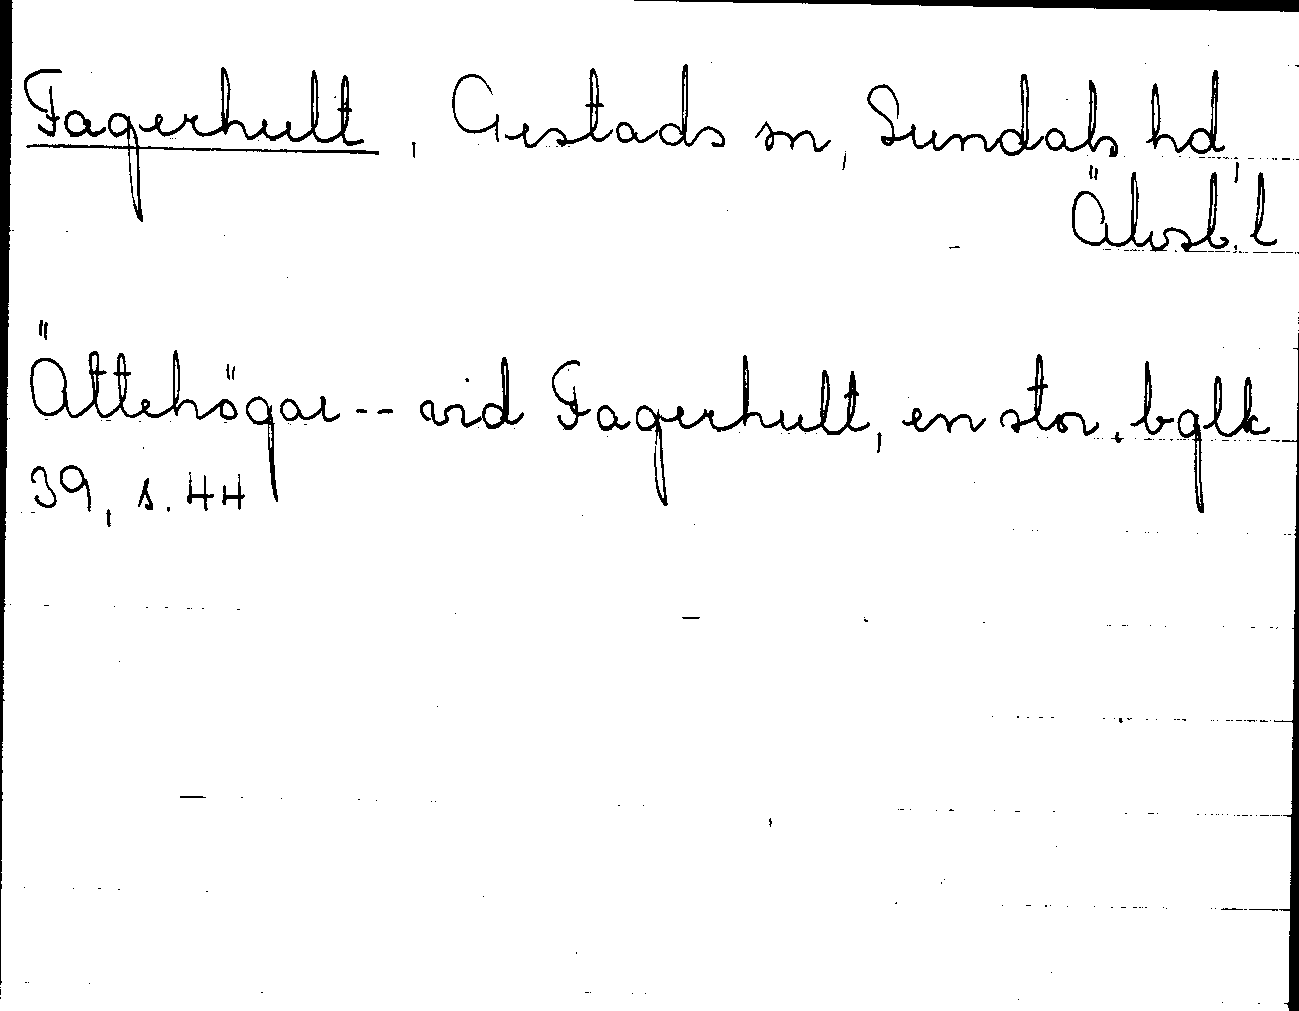 Fagerhult, Gestads sn, Sundals hd,
Älvsb. l
Ättehögar -- vid Fagerhult, en stor. bglk
39, s. 44